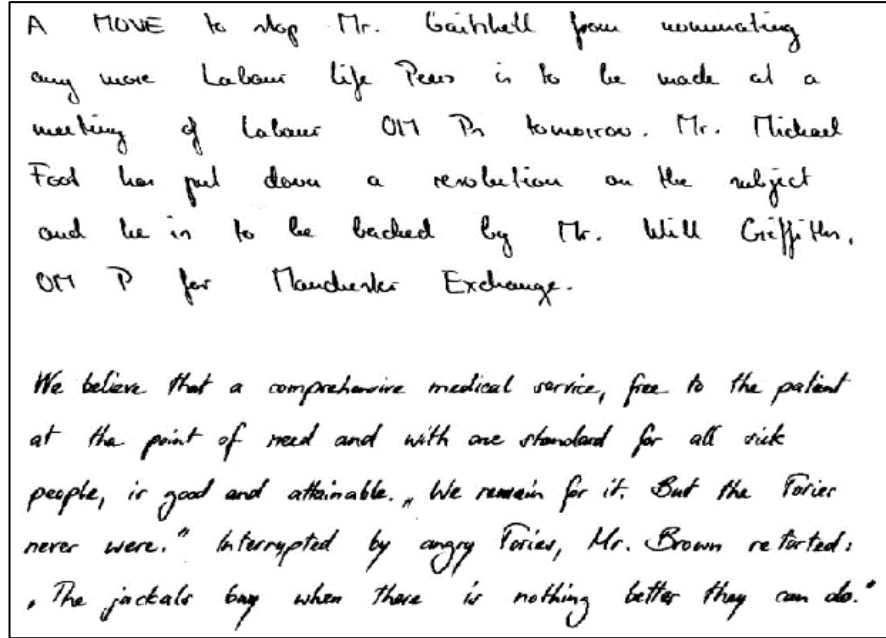 A MOVE to stop Mr. Gaitskell from nominating
any more Labour Life Peers is to be made at a
meeting of Labour OM Ps tomorrow. Mr. Michael
Foot has put down a resolution on the subject
and he is to be backed by Mr. Will Griffiths,
OM P for Manchester Exchange.
We believe that a comprehensive medical service, free to the patient
at the point of need and with one standard for all sick
people, is good and attainable. „ We remain for it. But the Tories
never were." Interrupted by angry Tories, Mr. Brown retorted:
„ The jackals bay when there is nothing better they can do."